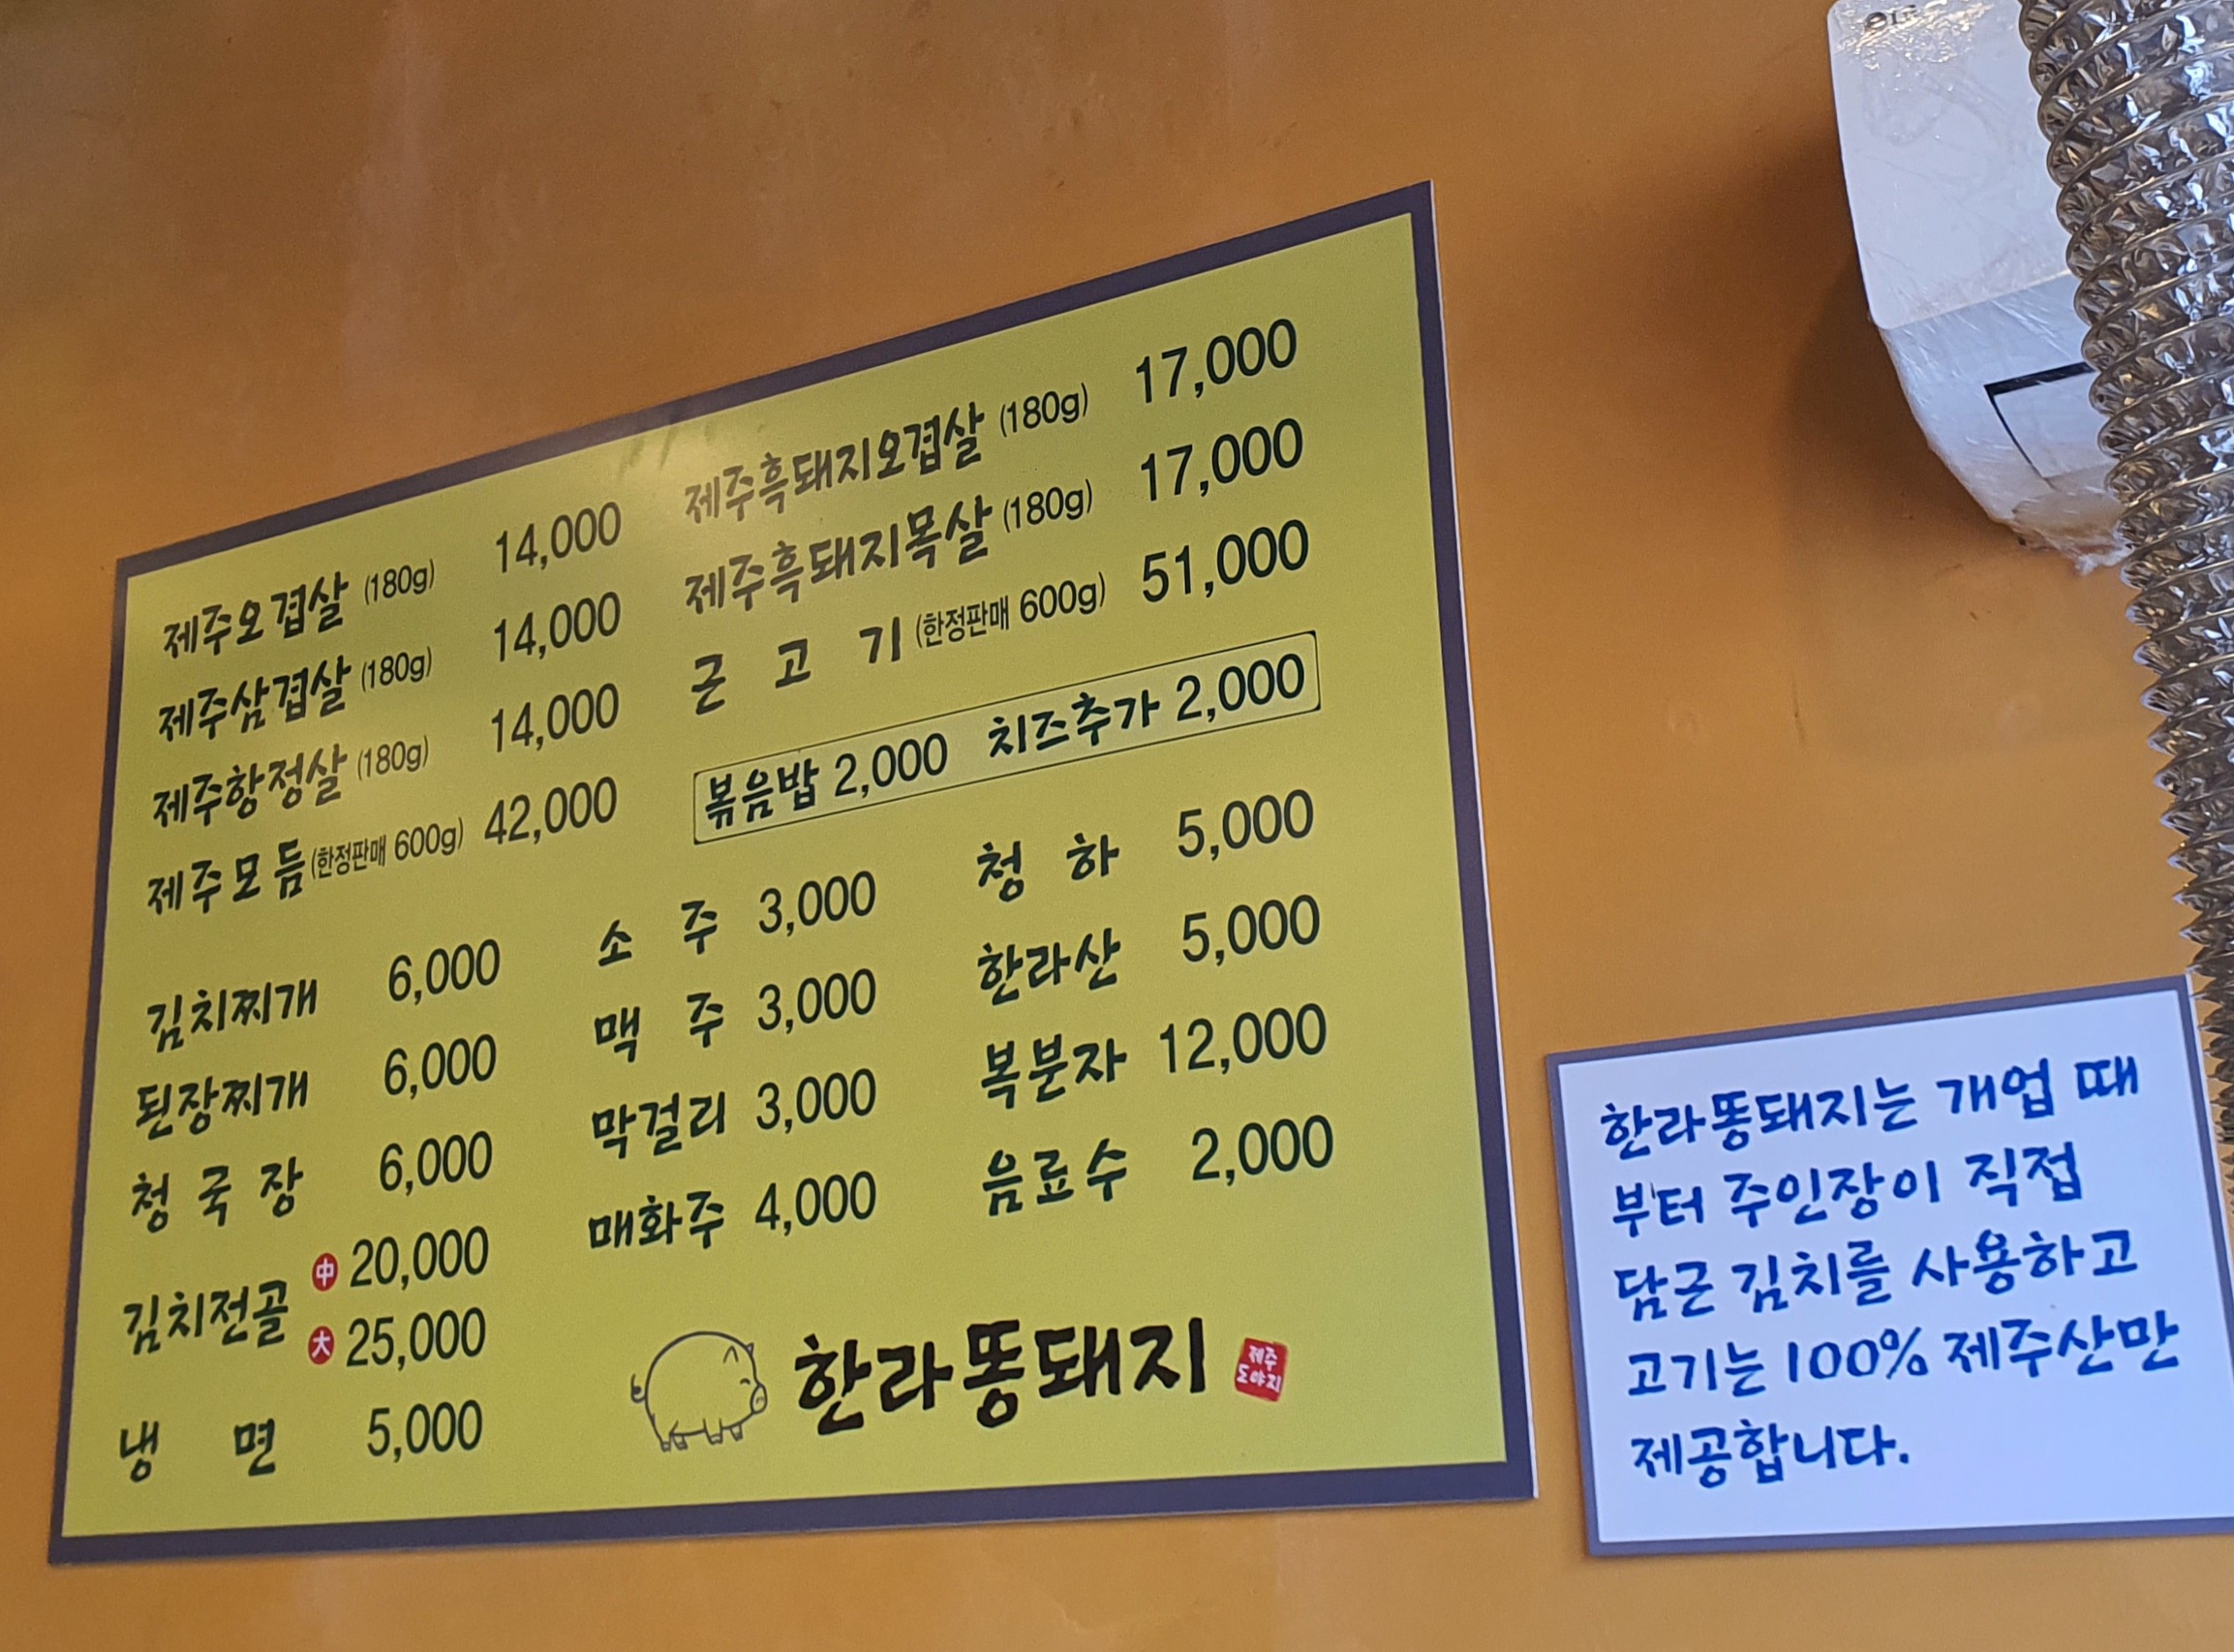 제주오겹살 (180g) 14,000
제주삼겹살 (180g) 14,000
제주항정살 (180g) 14,000
제주모듬 (한정판매 600g) 42,000
제주흑돼지오겹살 (180g) 17,000
제주흑돼지목살 (180g) 17,000
근 고 기 (한정판매 600g) 51,000
볶음밥 2,000 치즈추가 2,000
김치찌개 6,000
된장찌개 6,000
청 국 장 6,000
김치전골 中 20,000
大 25,000
냉 면 5,000
소 주 3,000
맥 주 3,000
막걸리 3,000
매화주 4,000
청 하 5,000
한라산 5,000
복분자 12,000
음료수 2,000
한라똥돼지
제주
도야지
한라똥돼지는 개업 때
부터 주인장이 직접
담근 김치를 사용하고
고기는 100% 제주산만
제공합니다.